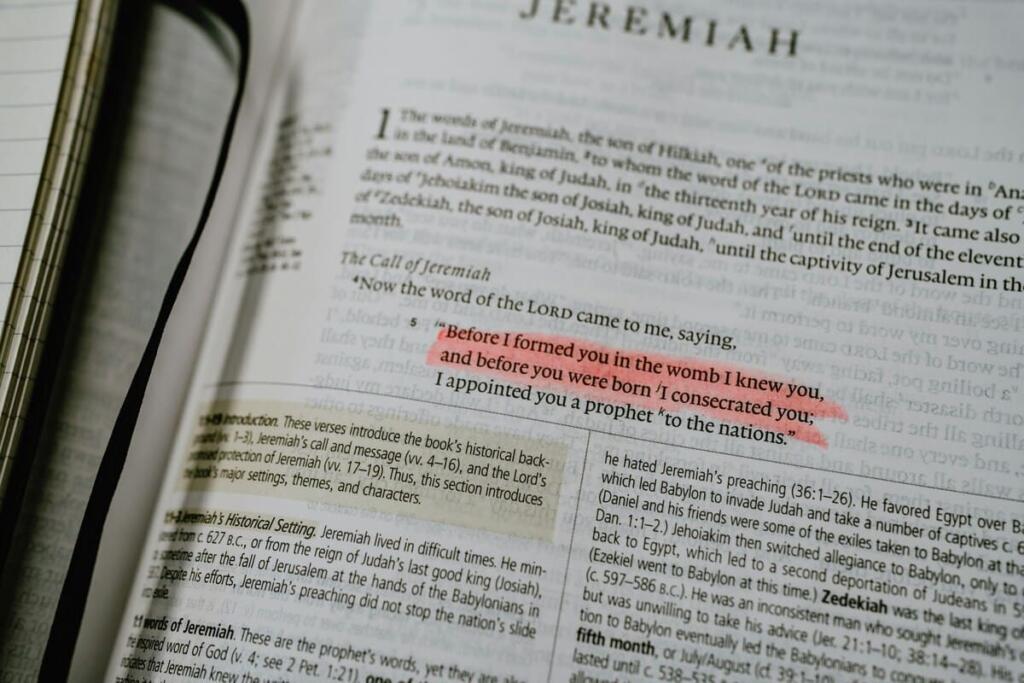 JEREMIAH
1 The words of Jeremiah, the son of Hilkiah, one of the priests who were in
in the land of Benjamin, to whom the word of the LORD came in the days of
the son of Amon, king of Judah, in the thirteenth year of his reign. ³It came also
days of Jehoiakim the son of Josiah, king of Judah, and until the end of the
of Zedekiah, the son of Josiah, king of Judah, until the captivity of Jerusalem in the
month.
The Call of Jeremiah
⁴Now the word of the LORD came to me, saying,
5 "Before I formed you in the womb I knew you,
and before you were born I consecrated you;
I appointed you a prophet to the nations."
Introduction. These verses introduce the book's historical back-
1–3), Jeremiah's call and message (vv. 4–16), and the Lord's
protection of Jeremiah (vv. 17–19). Thus, this section introduces
book's major settings, themes, and characters.
Jeremiah's Historical Setting. Jeremiah lived in difficult times. He min-
from c. 627 B.C., or from the reign of Judah's last good king (Josiah),
sometime after the fall of Jerusalem at the hands of the Babylonians in
Despite his efforts, Jeremiah's preaching did not stop the nation's slide
words of Jeremiah. These are the prophet's words, yet they are also
inspired word of God (v. 4; see 2 Pet. 1:21).
that Jeremiah knew the
he hated Jeremiah's preaching (36:1–26). He favored Egypt over
which led Babylon to invade Judah and take a number of captives c.
(Daniel and his friends were some of the exiles taken to Babylon at
Dan. 1:1–2.) Jehoiakim then switched allegiance to Babylon, only to
back to Egypt, which led to a second deportation of Judeans in
(Ezekiel went to Babylon at this time.) Zedekiah was the last king of
(c. 597–586 B.C.). He was an inconsistent man who sought Jeremiah's
but was unwilling to take his advice (Jer. 21:1–10; 38:14–28). His
tion to Babylon eventually led the Babylonians to conquer
fifth month, or July/August (cf. 39:1–10)
lasted until c. 538–535